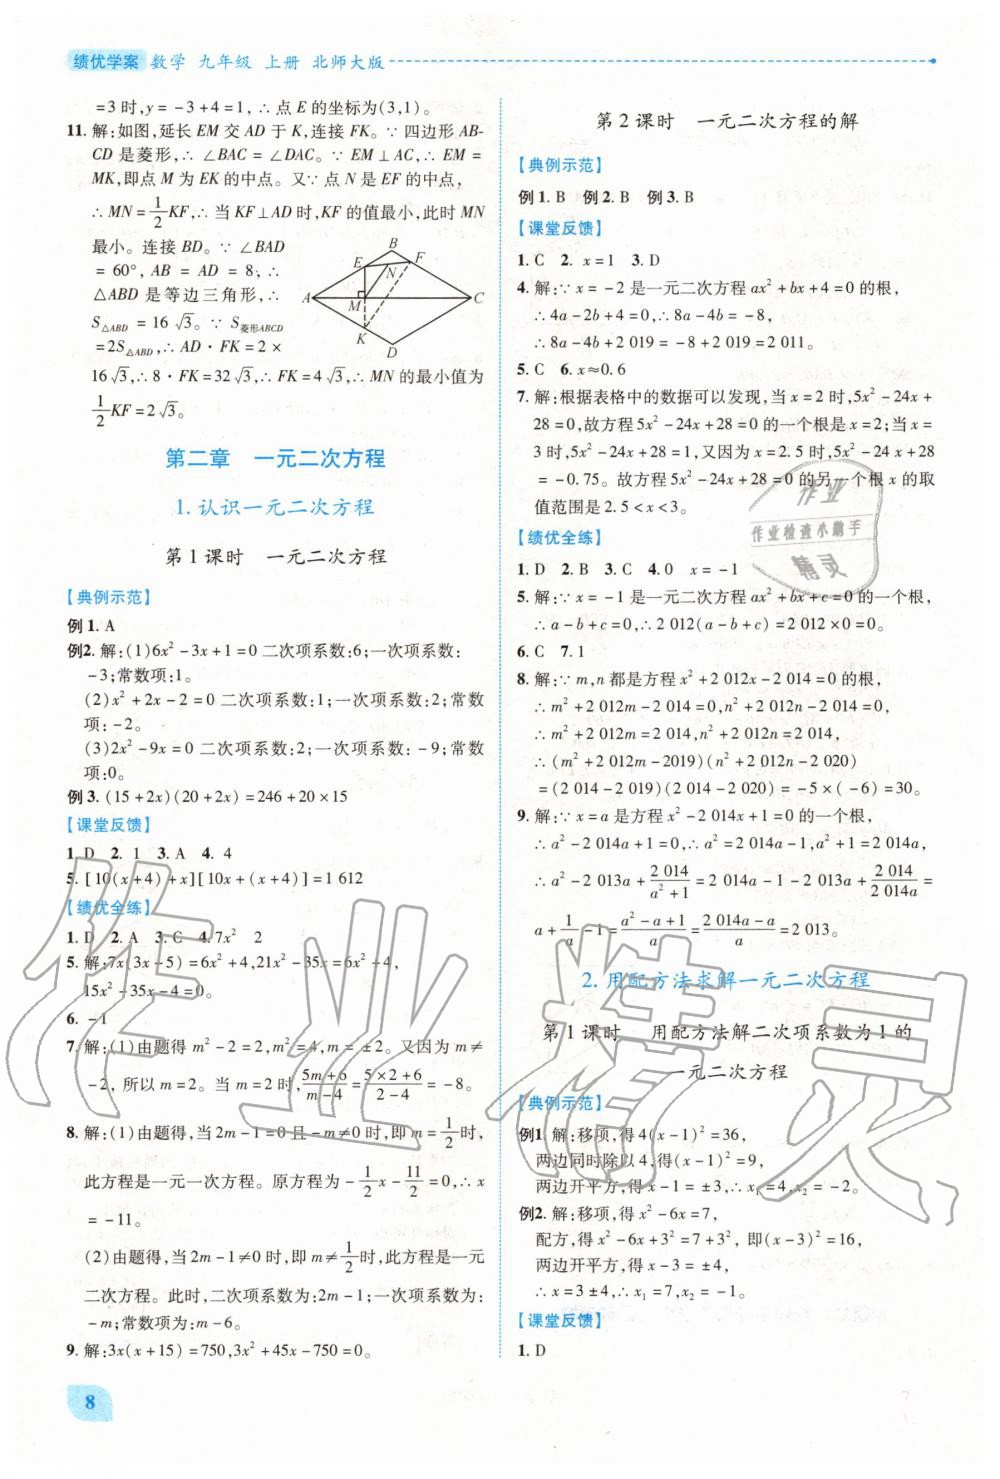 绩优学案 数学 九年级 上册 北师大版
=3时,y=-3+4=1,∴点E的坐标为(3,1)。
11.解:如图,延长EM交AD于K,连接FK。∵四边形AB-
CD是菱形,∴∠BAC=∠DAC。∵EM⊥AC,∴EM=
MK,即点M为EK的中点。又∵点N是EF的中点,
∴MN=1/2KF,∴当KF⊥AD时,KF的值最小,此时MN
最小。连接BD。∵∠BAD
=60°,AB=AD=8,∴
△ABD是等边三角形,∴
S△ABD=16√3。∵S菱形ABCD
=2S△ABD,∴AD·FK=2×
16√3,∴8·FK=32√3,∴FK=4√3,∴MN的最小值为
1/2KF=2√3。
B
E
F
N
A
M
C
K
D
第二章 一元二次方程
1.认识一元二次方程
第1课时 一元二次方程
【典例示范】
例1.A
例2.解:(1)6x²-3x+1=0 二次项系数:6;一次项系数:
-3;常数项:1。
(2)x²+2x-2=0 二次项系数:1;一次项系数:2;常数
项:-2。
(3)2x²-9x=0 二次项系数:2;一次项系数:-9;常数
项:0。
例3.(15+2x)(20+2x)=246+20×15
【课堂反馈】
1.D 2.1 3.A 4.4
5.[10(x+4)+x][10x+(x+4)]=1 612
【绩优全练】
1.D 2.A 3.C 4.7x² 2
5.解:7x(3x-5)=6x²+4,21x²-35x=6x²+4,
15x²-35x-4=0。
6.-1
7.解:(1)由题得m²-2=2,m²=4,m=±2。又因为m≠
-2,所以m=2。当m=2时,(5m+6)/(m-4)=(5×2+6)/(2-4)=-8。
8.解:(1)由题得,当2m-1=0且-m≠0时,即m=1/2时,
此方程是一元一次方程。原方程为-1/2x-11/2=0,∴x
=-11。
(2)由题得,当2m-1≠0时,即m≠1/2时,此方程是一元
二次方程。此时,二次项系数为:2m-1;一次项系数为:
-m;常数项为:m-6。
9.解:3x(x+15)=750,3x²+45x-750=0。
8
第2课时 一元二次方程的解
【典例示范】
例1.B 例2.B 例3.B
【课堂反馈】
1.C 2.x=1 3.D
4.解:∵x=-2是一元二次方程ax²+bx+4=0的根,
∴4a-2b+4=0,∴8a-4b=-8,
∴8a-4b+2 019=-8+2 019=2 011。
5.C 6.x≈0.6
7.解:根据表格中的数据可以发现,当x=2时,5x²-24x+
28=0,故方程5x²-24x+28=0的一个根是x=2;当x=
3时,5x²-24x+28=1,又因为x=2.5时,5x²-24x+28
=-0.75。故方程5x²-24x+28=0的另一个根x的取
值范围是2.5<x<3。
【绩优全练】
1.D 2.B 3.C 4.0 x=-1
5.解:∵x=-1是一元二次方程ax²+bx+c=0的一个根,
∴a-b+c=0,∴2 012(a-b+c)=2 012×0=0。
6.C 7.1
8.解:∵m,n都是方程x²+2 012x-2 014=0的根,
∴m²+2 012m-2 014=0,n²+2 012n-2 014=0,
∴m²+2 012m=2 014,n²+2 012n=2 014,
∴(m²+2 012m-2019)(n²+2 012n-2 020)
=(2 014-2 019)(2 014-2 020)=-5×(-6)=30。
9.解:∵x=a是方程x²-2 014x+1=0的一个根,
∴a²-2 014a+1=0,∴a²=2 014a-1,a²+1=2 014a,
∴a²-2 013a+2 014/(a²+1)=2 014a-1-2 013a+2 014/2 014a=
a+1/a-1=(a²-a+1)/a=(2 014a-a)/a=2 013。
2.用配方法求解一元二次方程
第1课时 用配方法解二次项系数为1的
一元二次方程
【典例示范】
例1.解:移项,得4(x-1)²=36,
两边同时除以4,得(x-1)²=9,
两边开平方,得x-1=±3,∴x₁=4,x₂=-2。
例2.解:移项,得x²-6x=7,
配方,得x²-6x+3²=7+3²,即(x-3)²=16,
两边开平方,得x-3=±4,
∴x=3±4,∴x₁=7,x₂=-1。
【课堂反馈】
1.D
作业
作业检查小帮手
精灵
作业精灵